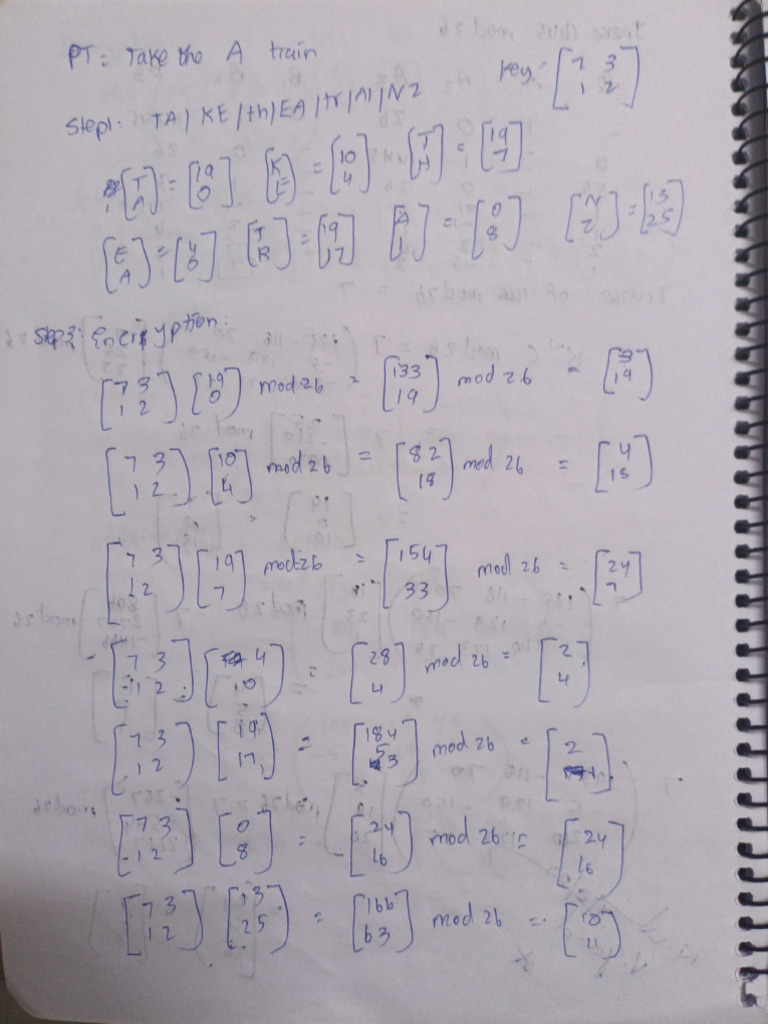 PT: Take the A train
Key: [7 3 / 1 2]
Step1: TA | KE | th | EA | tr | AI | NZ
[T / A] = [19 / 0] [K / E] = [10 / 4] [T / H] = [19 / 7]
[E / A] = [4 / 0] [T / R] = [19 / 17] [A / I] = [0 / 8] [N / Z] = [13 / 25]
Encryption:
[7 3 / 1 2] [19 / 0] mod 26 = [133 / 19] mod 26 = [3 / 19]
[7 3 / 1 2] [10 / 4] mod 26 = [82 / 18] mod 26 = [4 / 18]
[7 3 / 1 2] [19 / 7] mod 26 = [154 / 33] mod 26 = [24 / 7]
[7 3 / 1 2] [4 / 0] = [28 / 4] mod 26 = [2 / 4]
[7 3 / 1 2] [19 / 17] = [184 / 53] mod 26 = [2 / 1]
[7 3 / 1 2] [0 / 8] = [24 / 16] mod 26 = [24 / 16]
[7 3 / 1 2] [13 / 25] = [166 / 63] mod 26 = [10 / 11]